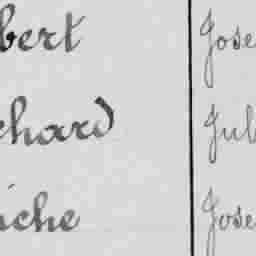 bert Jose
chard Jul
iche Jose